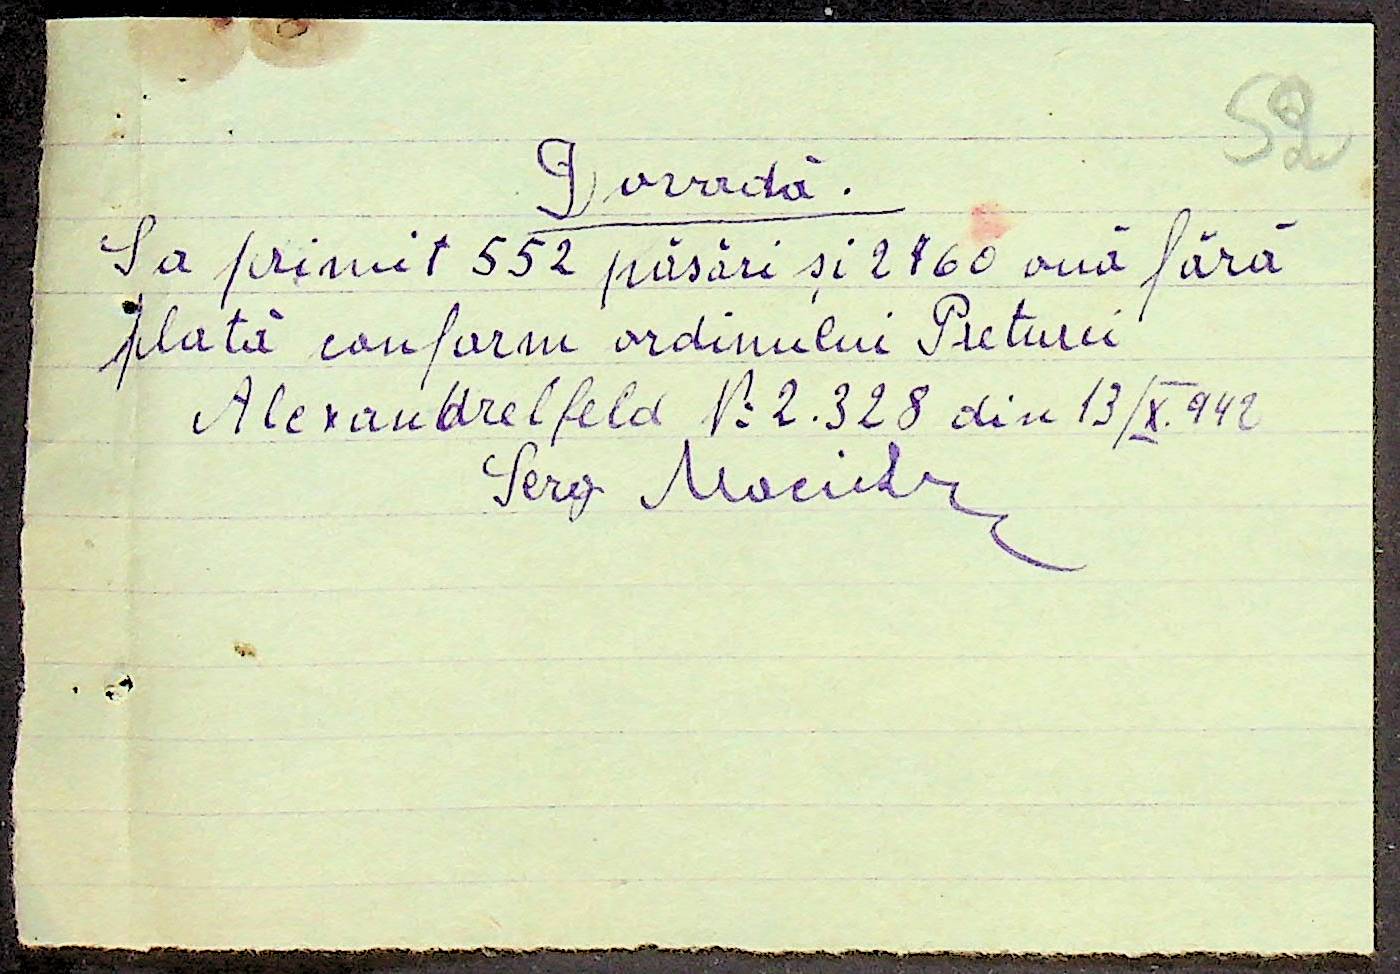 52
Dovadă.
Sa primit 552 păsări și 2160 ouă fără
plată conform ordinului Preturii
Alexandrelfeld № 2.328 din 13/X.942
Serg